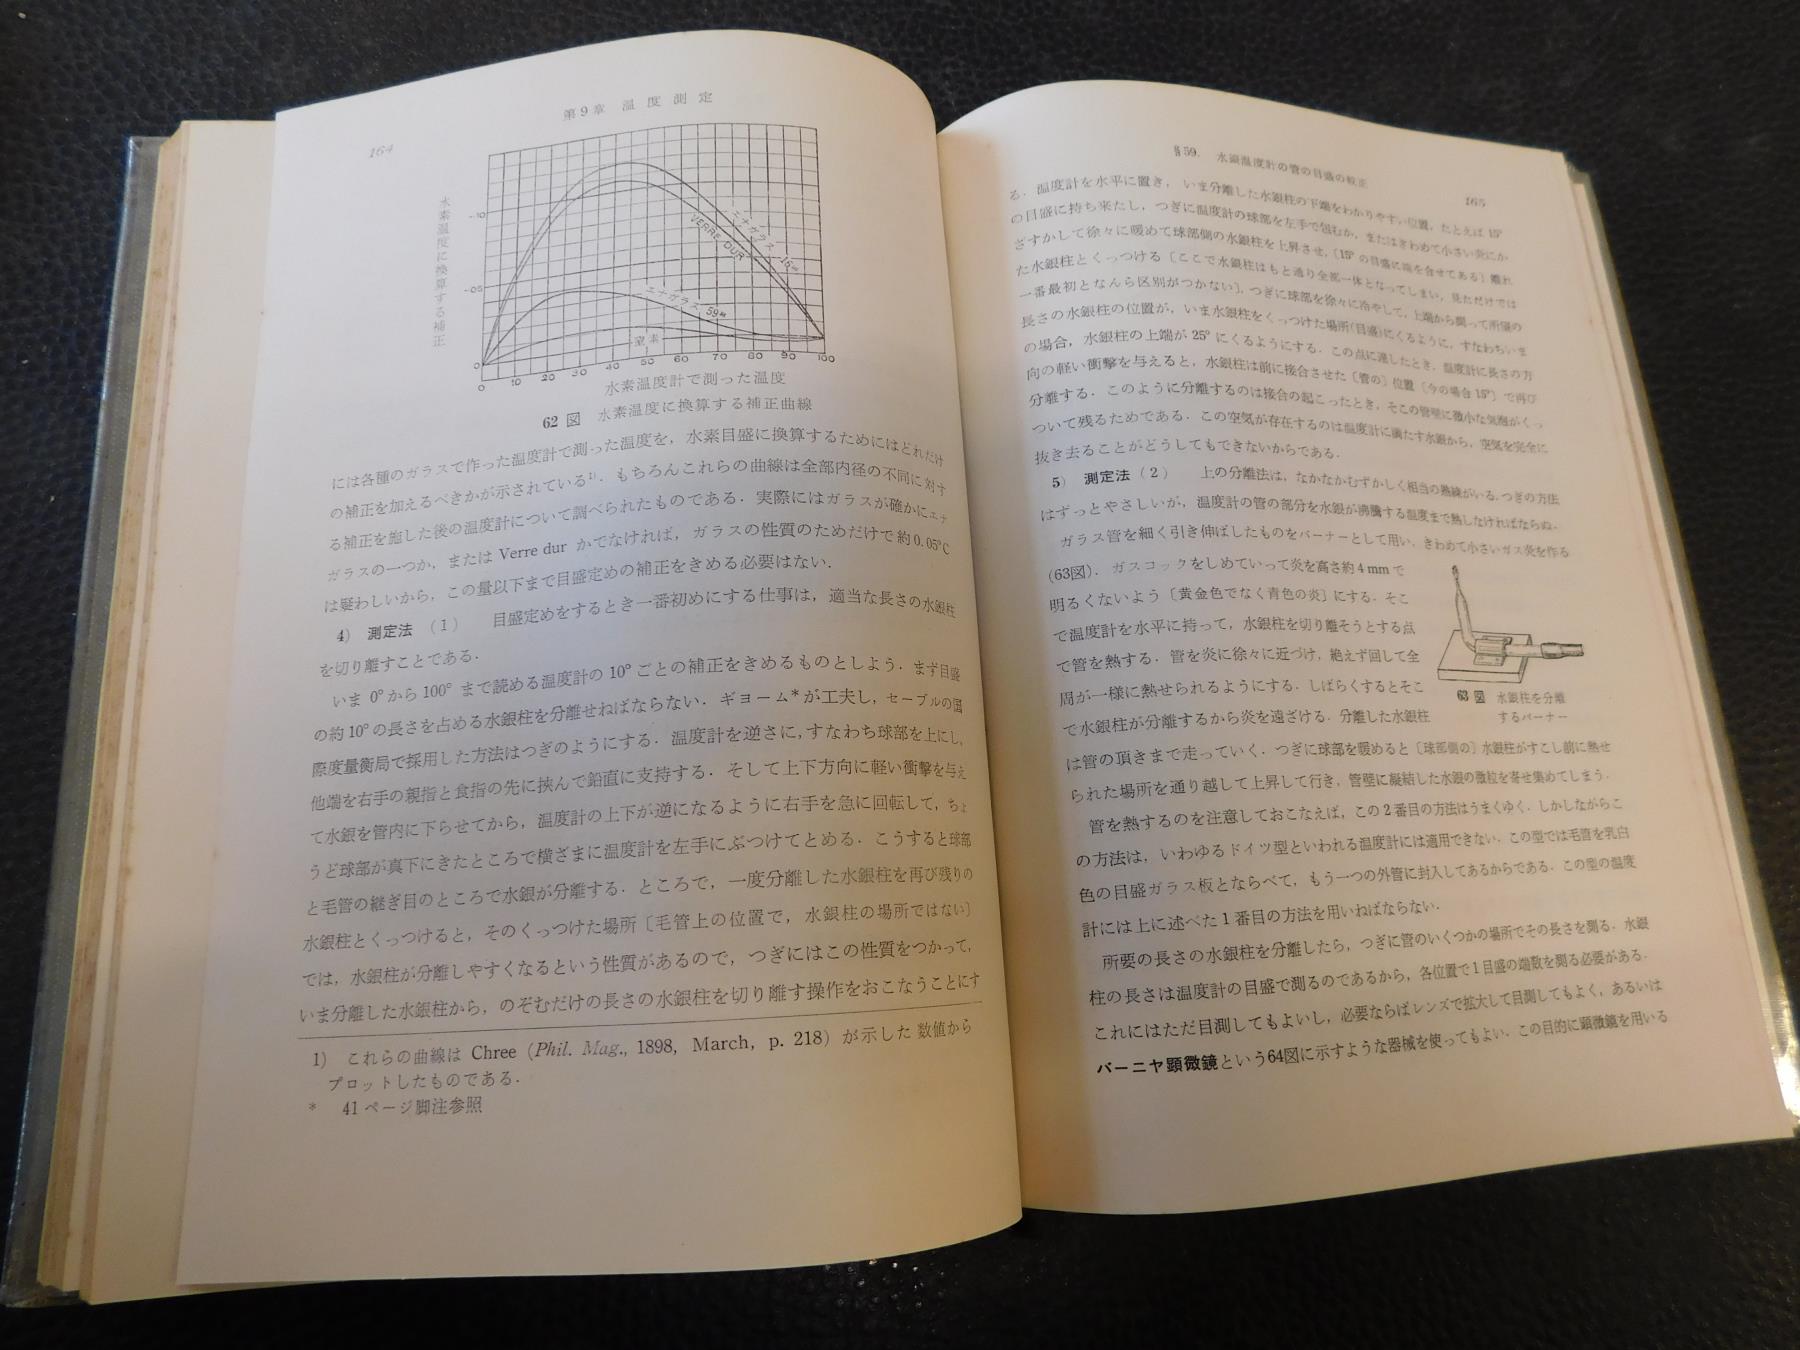 164
第9章 温度測定
水素温度に換算する補正
.10
.05
0
0 10 20 30 40 50 60 70 80 90 100
エナガラス 16III
VERRE DUR
エナガラス 59III
窒素
水素温度計で測った温度
62 図 水素温度に換算する補正曲線
には各種のガラスで作った温度計で測った温度を，水素目盛に換算するためにはどれだけ
の補正を加えるべきかが示されている1)．もちろんこれらの曲線は全部内径の不同に対す
る補正を施した後の温度計について調べられたものである．実際にはガラスが確かにエナ
ガラスの一つか，または Verre dur かでなければ，ガラスの性質のためだけで約0.05°C
は疑わしいから，この量以下まで目盛定めの補正をきめる必要はない．
4) 測定法 (1) 目盛定めをするとき一番初めにする仕事は，適当な長さの水銀柱
を切り離すことである．
いま 0°から 100° まで読める温度計の 10° ごとの補正をきめるものとしよう．まず目盛
の約10°の長さを占める水銀柱を分離せねばならない．ギヨーム*が工夫し，セーブルの国
際度量衡局で採用した方法はつぎのようにする．温度計を逆さに，すなわち球部を上にし，
他端を右手の親指と食指の先に挟んで鉛直に支持する．そして上下方向に軽い衝撃を与え
て水銀を管内に下らせてから，温度計の上下が逆になるように右手を急に回転して，ちょ
うど球部が真下にきたところで横ざまに温度計を左手にぶつけてとめる．こうすると球部
と毛管の継ぎ目のところで水銀が分離する．ところで，一度分離した水銀柱を再び残りの
水銀柱とくっつけると，そのくっつけた場所〔毛管上の位置で，水銀柱の場所ではない〕
では，水銀柱が分離しやすくなるという性質があるので，つぎにはこの性質をつかって，
いま分離した水銀柱から，のぞむだけの長さの水銀柱を切り離す操作をおこなうことにす
1) これらの曲線は Chree (Phil. Mag., 1898, March, p. 218) が示した 数値から
プロットしたものである．
* 41ページ脚注参照
§59. 水銀温度計の管の目盛の較正
165
る．温度計を水平に置き，いま分離した水銀柱の下端をわかりやすい位置，たとえば 15°
の目盛に持ち来たし，つぎに温度計の球部を左手で包むか，またはきわめて小さい炎にか
ざすかして徐々に暖めて球部側の水銀柱を上昇させ，〔15° の目盛に端を合せてある〕離れ
た水銀柱とくっつける〔ここで水銀柱はもと通り全部一体となってしまい，見ただけでは
一番最初となんら区別がつかない〕．つぎに球部を徐々に冷やして，上端から測って所望の
長さの水銀柱の位置が，いま水銀柱をくっつけた場所(目盛)にくるように，すなわちいま
の場合，水銀柱の上端が 25° にくるようにする．この点に達したとき，温度計に長さの方
向の軽い衝撃を与えると，水銀柱は前に接合させた〔管の〕位置〔今の場合 15°〕で再び
分離する．このように分離するのは接合の起こったとき，そこの管壁に微小な気泡がくっ
ついて残るためである．この空気が存在するのは温度計に満たす水銀から，空気を完全に
抜き去ることがどうしてもできないからである．
5) 測定法 (2) 上の分離法は，なかなかむずかしく相当の熟練がいる．つぎの方法
はずっとやさしいが，温度計の管の部分を水銀が沸騰する温度まで熱しなければならぬ．
ガラス管を細く引き伸ばしたものをバーナーとして用い，きわめて小さいガス炎を作る
(63図)．ガスコックをしめていって炎を高さ約4mmで
明るくないよう〔黄金色でなく青色の炎〕にする．そこ
で温度計を水平に持って，水銀柱を切り離そうとする点
で管を熱する．管を炎に徐々に近づけ，絶えず回して全
周が一様に熱せられるようにする．しばらくするとそこ
で水銀柱が分離するから炎を遠ざける．分離した水銀柱
63 図 水銀柱を分離
するバーナー
は管の頂きまで走っていく．つぎに球部を暖めると〔球部側の〕水銀柱がすこし前に熱せ
られた場所を通り越して上昇して行き，管壁に凝結した水銀の微粒を寄せ集めてしまう．
管を熱するのを注意しておこなえば，この2番目の方法はうまくゆく．しかしながらこ
の方法は，いわゆるドイツ型といわれる温度計には適用できない．この型では毛管を乳白
色の目盛ガラス板とならべて，もう一つの外管に封入してあるからである．この型の温度
計には上に述べた1番目の方法を用いねばならない．
所要の長さの水銀柱を分離したら，つぎに管のいくつかの場所でその長さを測る．水銀
柱の長さは温度計の目盛で測るのであるから，各位置で1目盛の端数を測る必要がある．
これにはただ目測してもよいし，必要ならばレンズで拡大して目測してもよく，あるいは
バーニヤ顕微鏡という64図に示すような器械を使ってもよい．この目的に顕微鏡を用いる